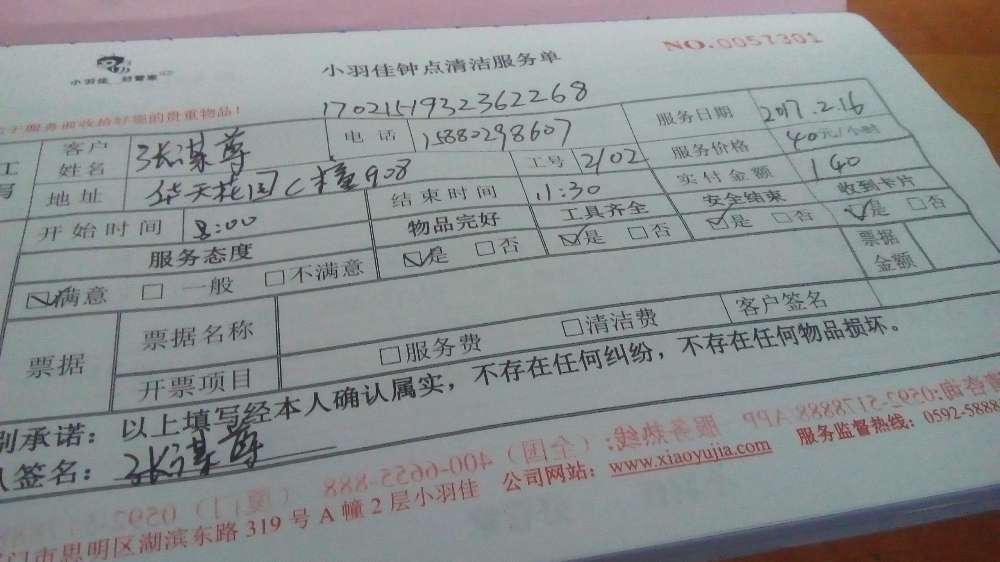 小羽佳 好管家
小羽佳钟点清洁服务单
NO.0057301
服务前收拾好您的贵重物品!
1702151932362268
客户姓名 张谋尊 电话 15880298607 服务日期 2017.2.16
地址 华天花园C幢908 工号 2102 服务价格 40元/小时
开始时间 8:00 结束时间 11:30 实付金额 140
服务态度 物品完好 工具齐全 安全结束 收到卡片
满意 一般 不满意 是 否 是 否 是 否 是 否
票据 票据名称 票据金额
开票项目 服务费 清洁费 客户签名
承诺:以上填写经本人确认属实,不存在任何纠纷,不存在任何物品损坏。
签名: 张谋尊
公司网站:www.xiaoyujia.com 服务监督热线:0592-5888
门市思明区湖滨东路319号A幢2层小羽佳